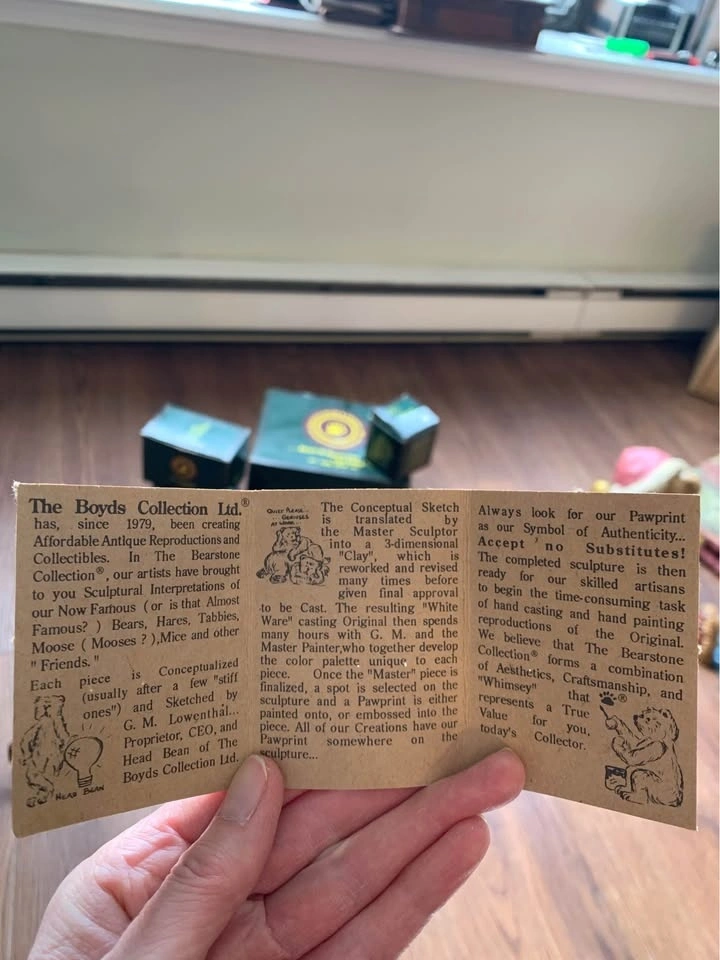 The Boyds Collection Ltd.®
has, since 1979, been creating
Affordable Antique Reproductions and
Collectibles. In The Bearstone
Collection®, our artists have brought
to you Sculptural Interpretations of
our Now Famous (or is that Almost
Famous? ) Bears, Hares, Tabbies,
Moose ( Mooses ? ),Mice and other
" Friends. "
Each piece is Conceptualized
(usually after a few "stiff
ones") and Sketched by
G. M. Lowenthal...
Proprietor, CEO, and
Head Bean of The
Boyds Collection Ltd.
HEAD BEAN
QUIET PLEASE...
GENIUSES
AT WORK...
The Conceptual Sketch
is translated by
the Master Sculptor
into a 3-dimensional
"Clay", which is
reworked and revised
many times before
given final approval
to be Cast. The resulting "White
Ware" casting Original then spends
many hours with G. M. and the
Master Painter,who together develop
the color palette unique to each
piece. Once the "Master" piece is
finalized, a spot is selected on the
sculpture and a Pawprint is either
painted onto, or embossed into the
piece. All of our Creations have our
Pawprint somewhere on the
sculpture...
Always look for our Pawprint
as our Symbol of Authenticity...
Accept no Substitutes!
The completed sculpture is then
ready for our skilled artisans
to begin the time-consuming task
of hand casting and hand painting
reproductions of the Original.
We believe that The Bearstone
Collection® forms a combination
of Aesthetics, Craftsmanship, and
"Whimsey" that
represents a True
Value for you,
today's Collector.
®